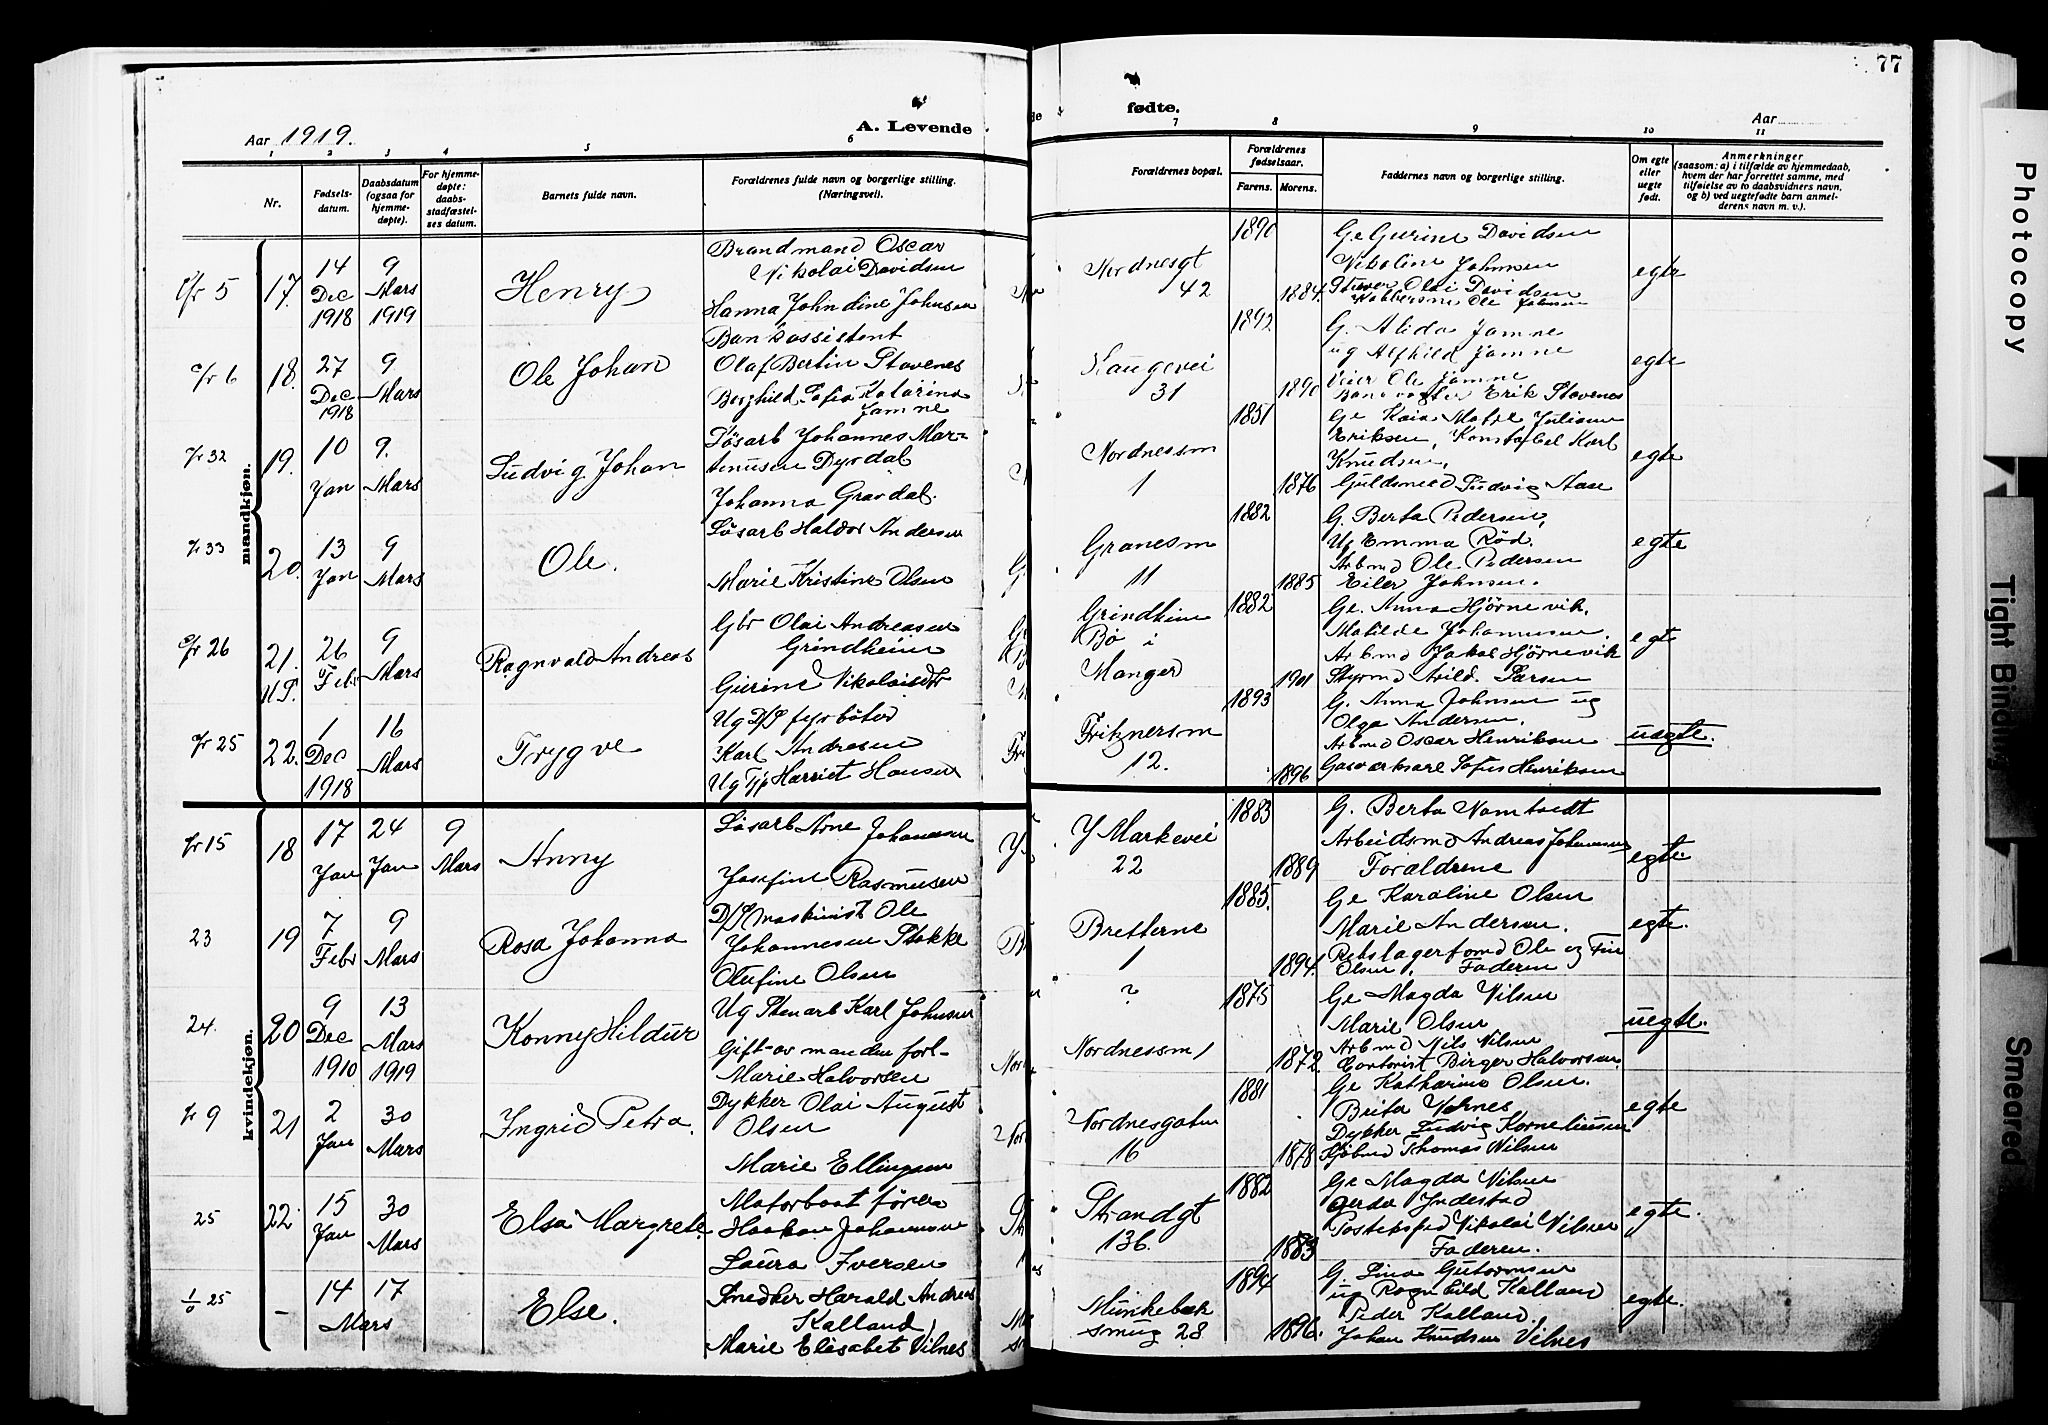 77
Aar 1919.
A. Levende
fødte.
Aar
1 2 3 4 5 6 7 8 9 10 11
Nr.
Fødsels-
datum.
Daabsdatum
(ogsaa for
hjemme-
døpte).
For hjemme-
døpte:
daabs-
stadfæstel-
ses datum.
Barnets fulde navn.
Forældrenes fulde navn og borgerlige stilling.
(Næringsvei).
Forældrenes bopæl.
Forældrenes
fødselsaar.
Farens. Morens.
Faddernes navn og borgerlige stilling.
Om egte
eller
uegte
født.
Anmerkninger
(saasom: a) i tilfælde av hjemmedaab,
hvem der har forrettet samme, med
tilføielse av to daabsvidners navn,
og b) ved uegtefødte barn anmel-
derens navn m. v.).
mandkjøn.
5 17. 14 Dec 1918 9 Mars 1919 Henry
Brandmand Oscar
Nikolai Davidsen
Hanna Johndine Johnsen
Nordnesgt
42
1890 1884.
Ge Gurine Davidsen
Nikoline Johnsen
Olai Davidsen
Ole Johnsen
egte
6 18. 27 Dec 1918 9 Mars Ole Johan
Bankassistent
Olaf Bertin Stavenes
Borghild Sofia Katarina
Jamne
Haugevei
31
1892 1890
G. Alida Jamne
ug Alfhild Jamne
Ole Jamne
Banevogter Erik Stavenes
egte
32 19. 10 Jan 9. Mars Ludvig Johan
Løsarb Johannes Mar-
tinusen Dyrdal
Johanna Gravdal.
Nordnessm
1
1851 1876
Ge Kaia Juliane
Eriksen, Konstabel Karl
Knudsen,
Guldsmed Ludvig Aase
egte
33 20. 13 Jan 9 Mars Ole.
Løsarb Haldor Andersen
Marie Kristine Olsen
Granesm
11
1882 1885
G. Berta Pedersen,
Ug Emma Rød.
Arbmd Ole Pedersen
Eiler Johnsen.
egte
26 21. 26 Febr 9 Mars Ragnvald Andreas
Gbr Olai Andreasen
Grindheim
Gurine Nikolaisdtr
Grindheim
Bø i
Manger
1882 1901
Ge. Anna Hjørnevik.
Matilde Johannesen.
Arbmd Jakob Hjørnevik
Styrmd Arild. Larsen
egte
25 22. 1 Dec 1918 16 Mars Trygve
Ug D/S fyrbøter
Karl Andresen
Ug Tjp Harriet Hansen
Fritznersm
12.
1893 1896
G. Anna Johnsen ug
Olga Andersen.
Arbmd Oscar Henriksen
Gasverksarb Sofus Henriksen
uegte.
kvindekjøn.
15 18 17 Jan 24 Jan 9 Mars Anny
Løsarb Arne Johannesen
Josefine Rasmussen
Y Markevei
22
1883 1889
G. Berta Namtvedt
Arbeidsmd Andreas Johannesen
Forældrene
egte.
23 19 7 Febr 9 Mars Rosa Johanna
D/S maskinist Ole
Johannesen Stokke
Olufine Olsen
Bretterne
1
1885. 1894.
Ge Karoline Olsen
Marie Andersen.
Rebslagerfomd Ole og Finn
Olsen. Faderen
egte.
24. 20 9 Dec 1910 13 Mars 1919 Konny Hildur
Ug Stenarb Karl Johnsen
Gift-av manden forl-
Marie Halvorsen
?
Nordnessm 1
1875 1872.
Ge Magda Nilsen
Marie Olsen
Arbmd Nils Nilsen
Contorist Birger Halvorsen.
uegte.
9 21 2 Jan 30 Mars Ingrid Petra.
Dykker Olai August
Olsen
Marie Ellingsen
Nordnesgaten
16
1881 1878
Ge Katharina Olsen.
Brita
Dykker Ludvig Korneliussen
Kjøbmd Thomas Nilsen
egte
25 22. 15 Jan 30 Mars Elsa Margrete.
Motorbaat fører
Haakon Johannesen
Laura Iversen
Strandgt
136.
1882 1883
Ge Magda Nilsen
Gerda Indestad
Posteksped Nikolai Nilsen
Faderen.
egte.
25 – 14 17 Mars Else.
Snedker Harald Andreas
Kalland
Marie Elisabet Vilnes
Munkebæk
smug 28
1894 1896.
G. Lina Guttormsen
ug Ragnhild Kalland
Peder Kalland.
Johan Knudsen Vilnes
egte.
Photocopy
Tight Binding
Smeared